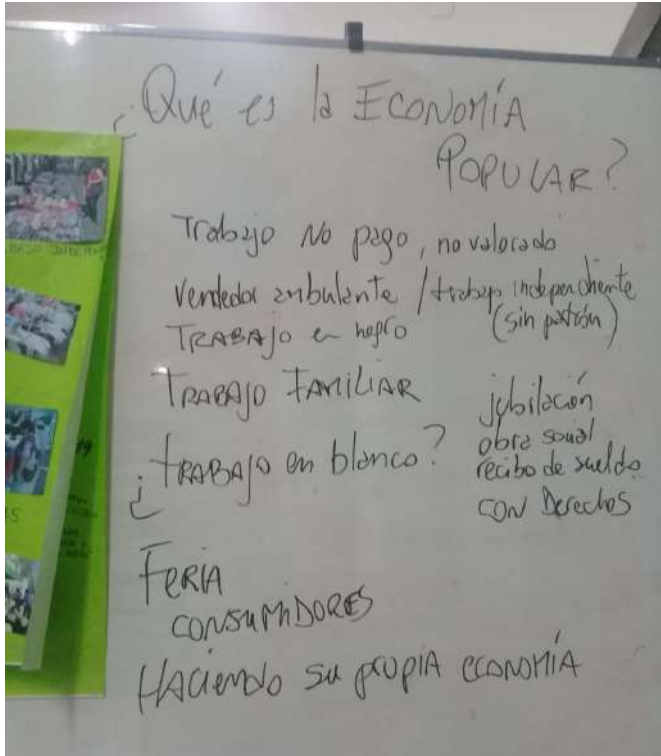 ¿Qué es la ECONOMÍA
POPULAR?
Trabajo No pago, no valorado
Vendedor ambulante / trabajo independiente
(sin patrón)
TRABAJO en negro
TRABAJO FAMILIAR
¿TRABAJO en blanco?
jubilación
obra social
recibo de sueldo
CON Derechos
FERIA
CONSUMIDORES
HACIENDO SU PROPIA ECONOMÍA